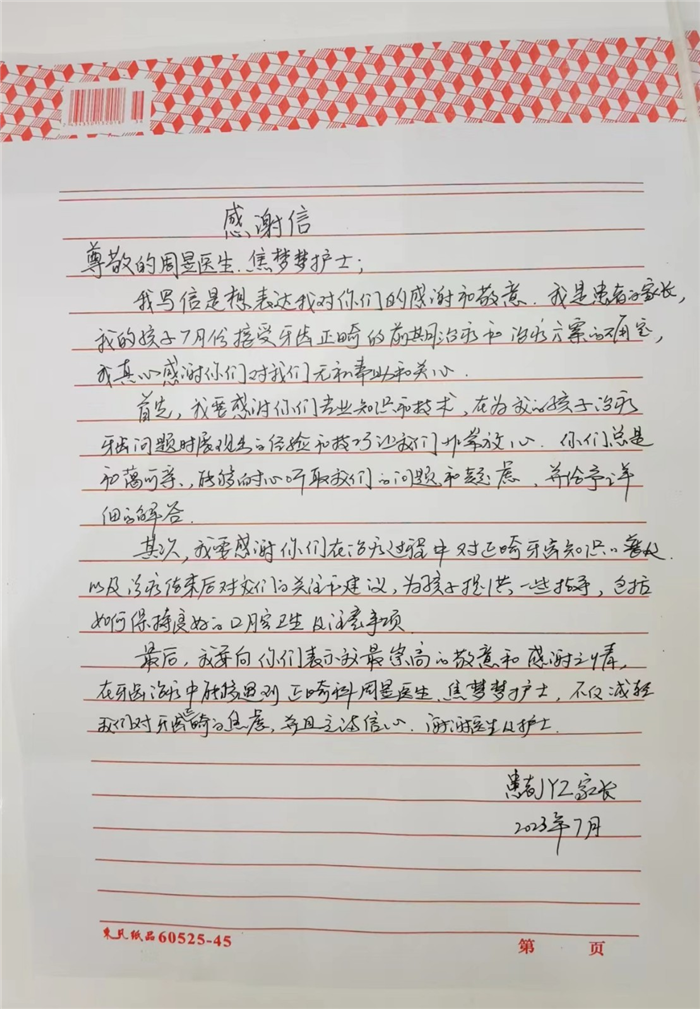 感谢信
尊敬的周昱医生、焦梦梦护士；
我写信是想表达我对你们的感谢和敬意．我是患者的家长，
我的孩子7月份接受牙齿正畸的前期治疗和治疗方案的确定，
我真心感谢你们对我们无私奉献和关心．
首先，我要感谢你们专业知识和技术，在为我的孩子治疗
牙齿问题时展现出的经验和技巧让我们非常放心．你们总是
和蔼可亲，能够耐心听取我们的问题和疑虑，并给予详
细的解答．
其次，我要感谢你们在治疗过程中对正畸牙齿知识的普及
以及治疗结束后对我们的关注和建议，为孩子提供一些指导，包括
如何保持良好的口腔卫生及注意事项
最后，我要向你们表示我最崇高的敬意和感谢之情，
在牙齿治疗中能接遇到正畸科周昱医生、焦梦梦护士，不仅减轻
我们对牙齿正畸的焦虑，并且充满信心．谢谢医生及护士．
患者JYZ家长
2023年7月
60525-45
第 页